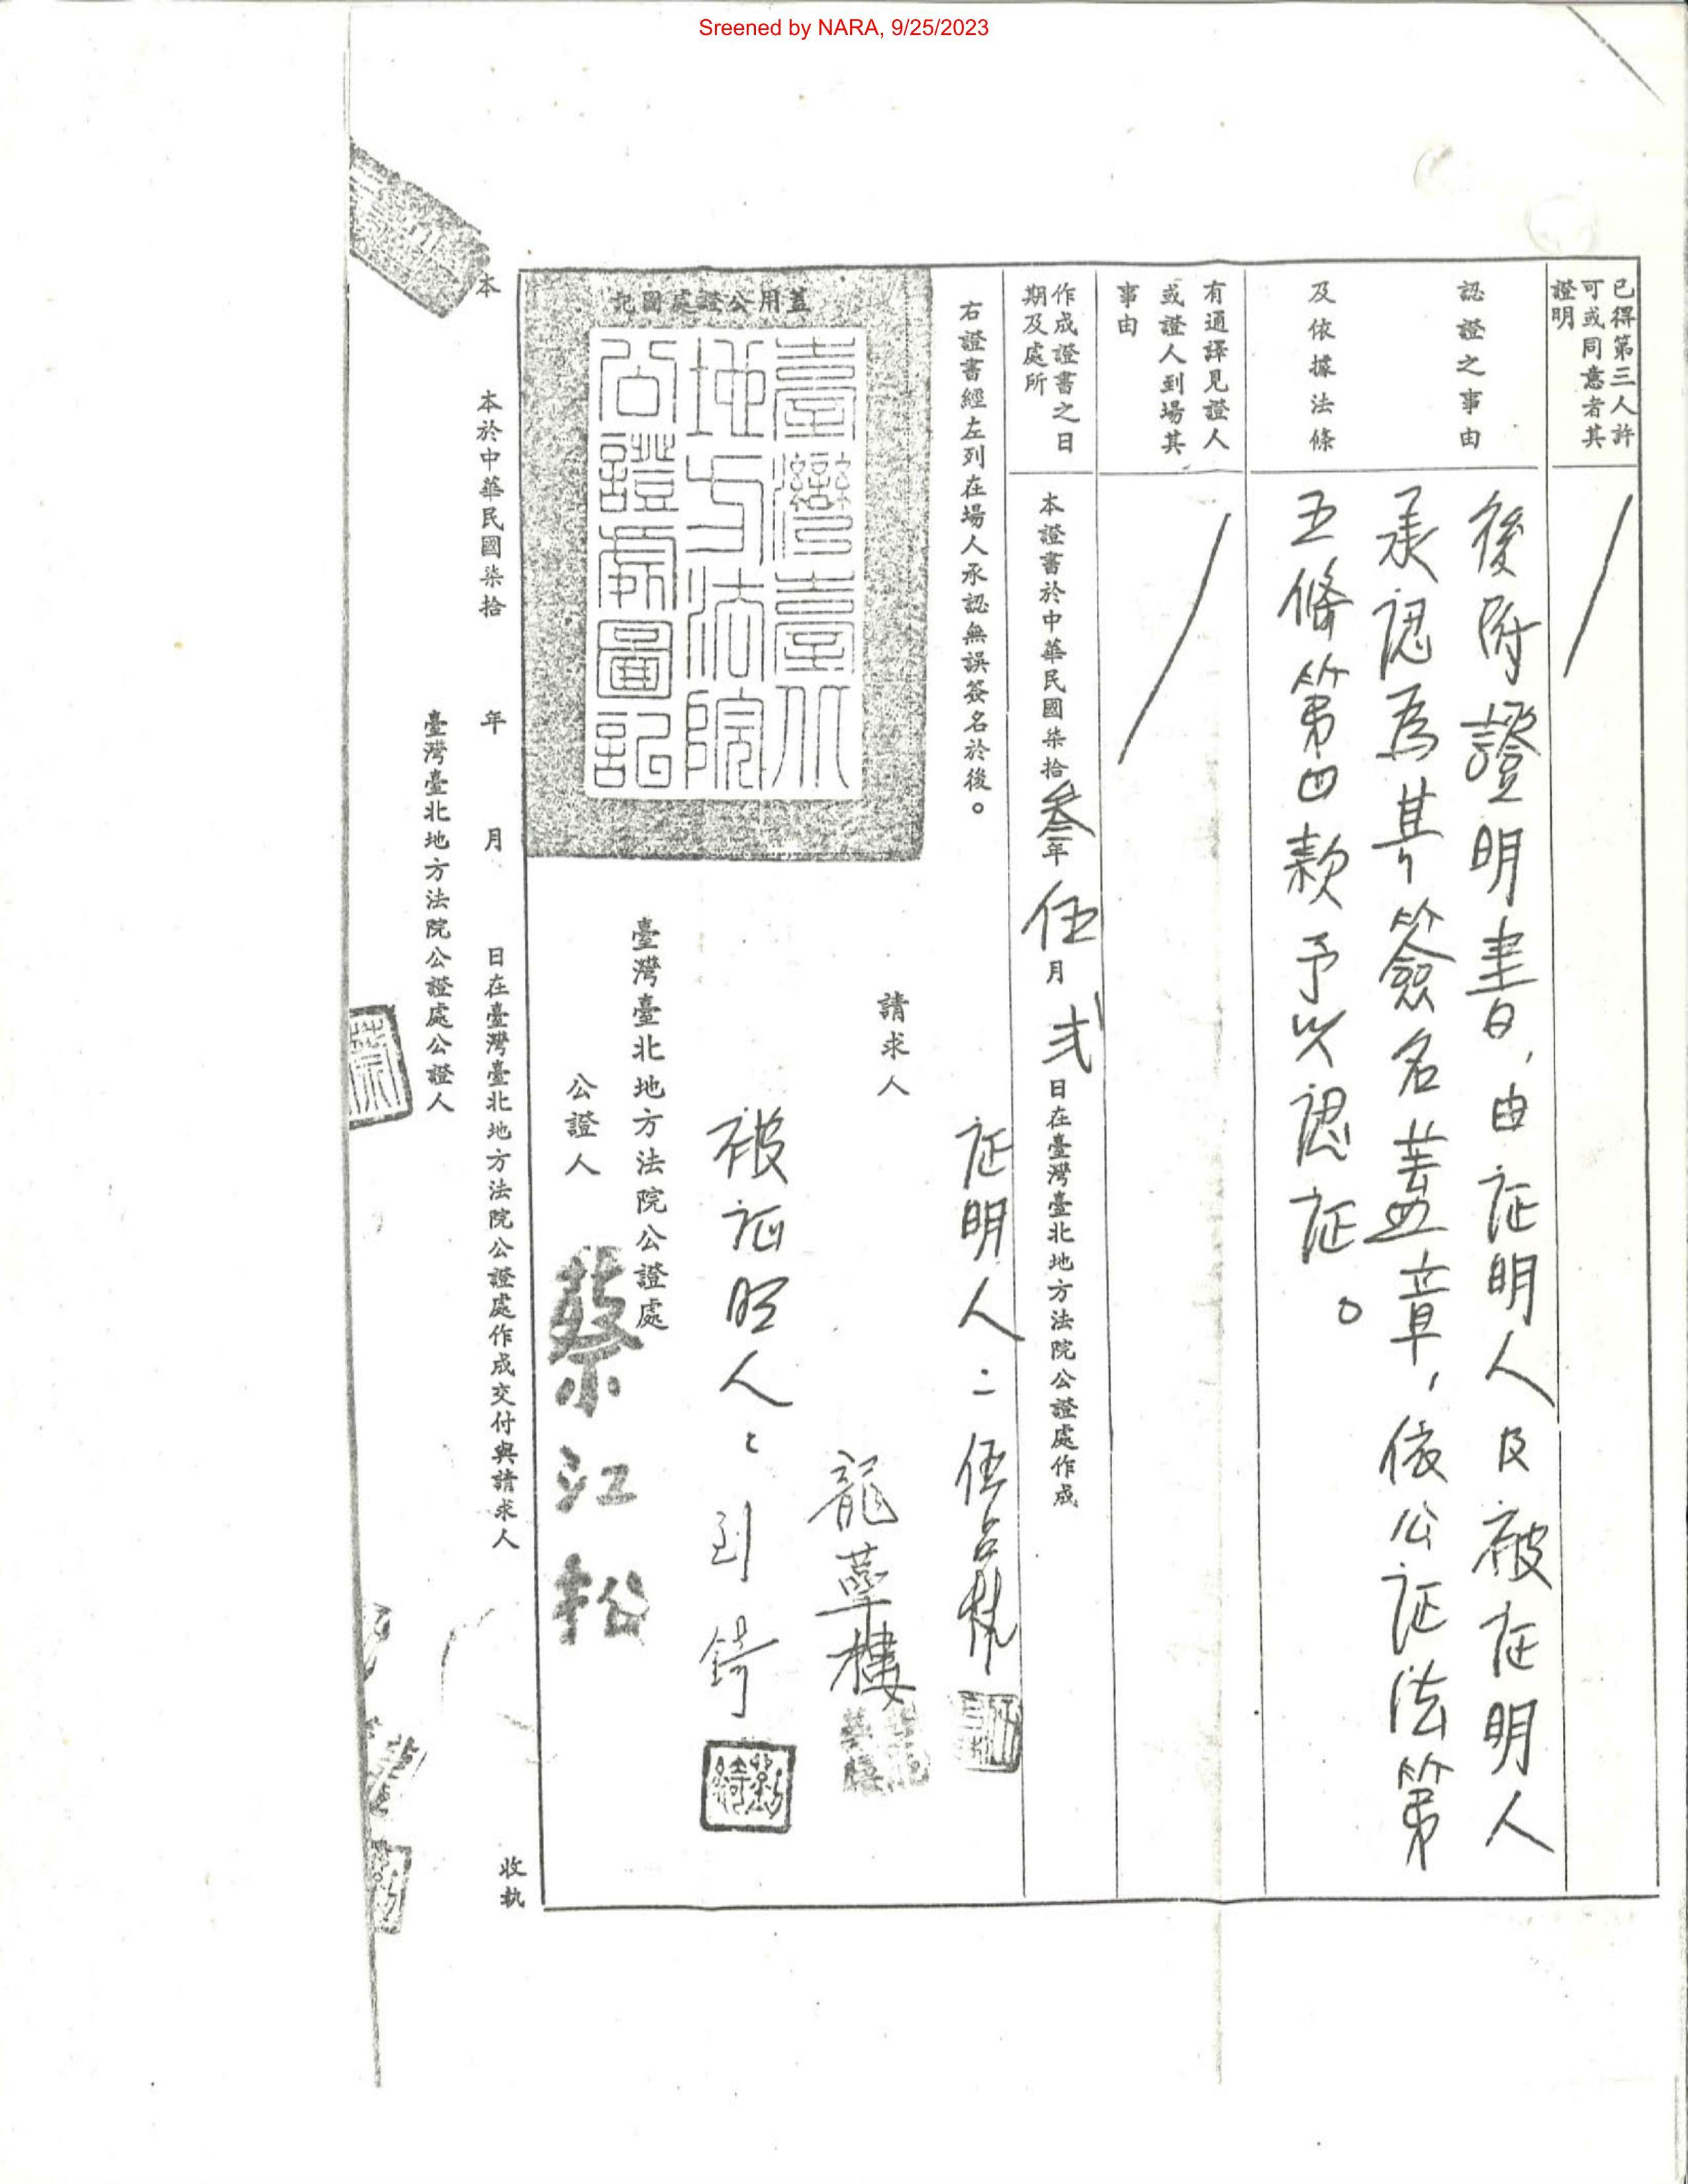 Sreened by NARA, 9/25/2023
已得第三人許
可或同意者其
證明
認證之事由
及依據法條
後附證明書，由证明人及被证明人
承認為其簽名蓋章，依公证法第
五條第四款予以認证。
有通譯見證人
或證人到場其
事由
作成證書之日
期及處所
本證書於中華民國柒拾叁年伍月弍日在臺灣臺北地方法院公證處作成
右證書經左列在場人承認無誤簽名於後。
請求人
证明人：伍
龍華樓
被证明人：劉錡
蓋用公證處圖記
臺灣臺北
地方法院
公證處圖記
臺灣臺北地方法院公證處
公證人 蔡江松
本
本於中華民國柒拾 年 月 日在臺灣臺北地方法院公證處作成交付與請求人 收執
臺灣臺北地方法院公證處公證人